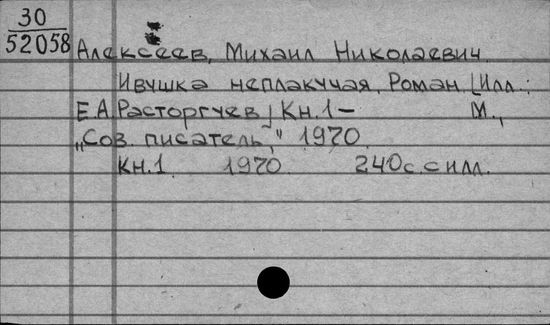 30
52058
Алексеев, Михаил Николаевич.
Ивушка неплакучая. Роман. [Илл.:
Е.А. Расторгуев] Кн.1- М.,
„Сов. писатель," 1970.
Кн.1. 1970. 240с. с илл.